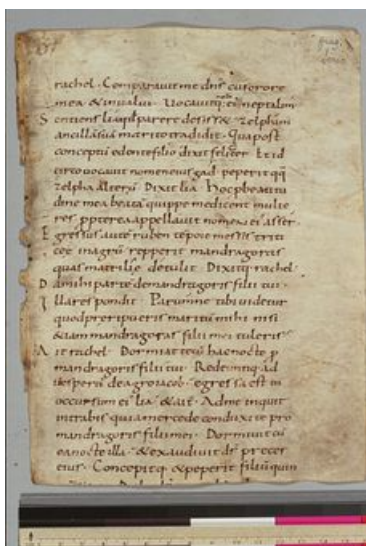 rachel · Comparauit me dñs cũ sorore
mea & inualui · Uocauitq; eũ neptalim
S entiens lia qđ parere desisset zelpham
ancillã suã marito tradidit · Quae post
conceptũ edente filio dixit feliciter · Et id
circo uocauit nomen eius gad · peperit qq;
zelpha alterũ · Dixit lia · Hoc p beatitu
dine mea beatã quippe me dicent mulie
res · ppterea appellauit nomen ei' asser ·
E gressus autẽ ruben tẽpore messis triti
ceę in agrũ repperit mandragoras
quas matri lię detulit · Dixitq; rachel ·
D a mihi partẽ de mandragoris filii tui ·
I lla respondit · Parumne tibi uidetur
quod preripueris maritũ mihi nisi
&iam mandragoras filii mei tuleris ·
A it rachel · Dormiat tecũ hac nocte p
mandragoris filii tui · Redeuntiq; ad
uesperũ de agro iacob · egressa est in
occursum ei' lia & ait · Ad me inquit
intrabis quia mercede conduxi te pro
mandragoris filii mei · Dormiuit cũ
ea nocte illa · & exaudiuit d̃s preces
eius · Concepitq; & peperit filiũ quin